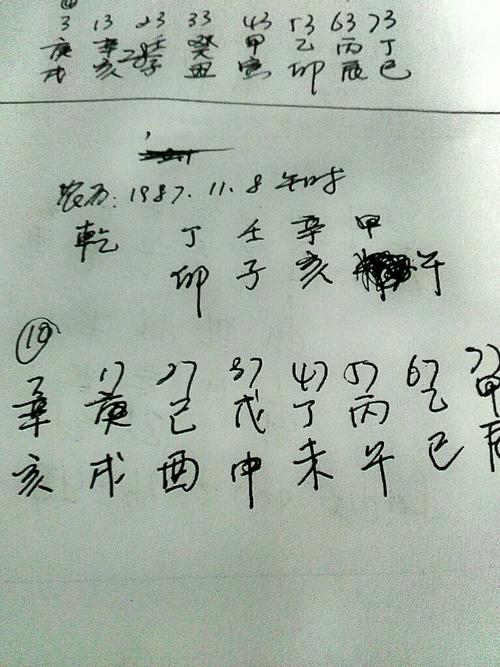 3 13 23 33 43 53 63 73
庚 辛 壬 癸 甲 乙 丙 丁
戌 亥 子 丑 寅 卯 辰 巳
农历: 1987. 11. 8 午时
乾 丁 壬 辛 甲
卯 子 亥 午
19
7 17 27 37 47 57 67 77
辛 庚 己 戊 丁 丙 乙 甲
亥 戌 酉 申 未 午 巳 辰